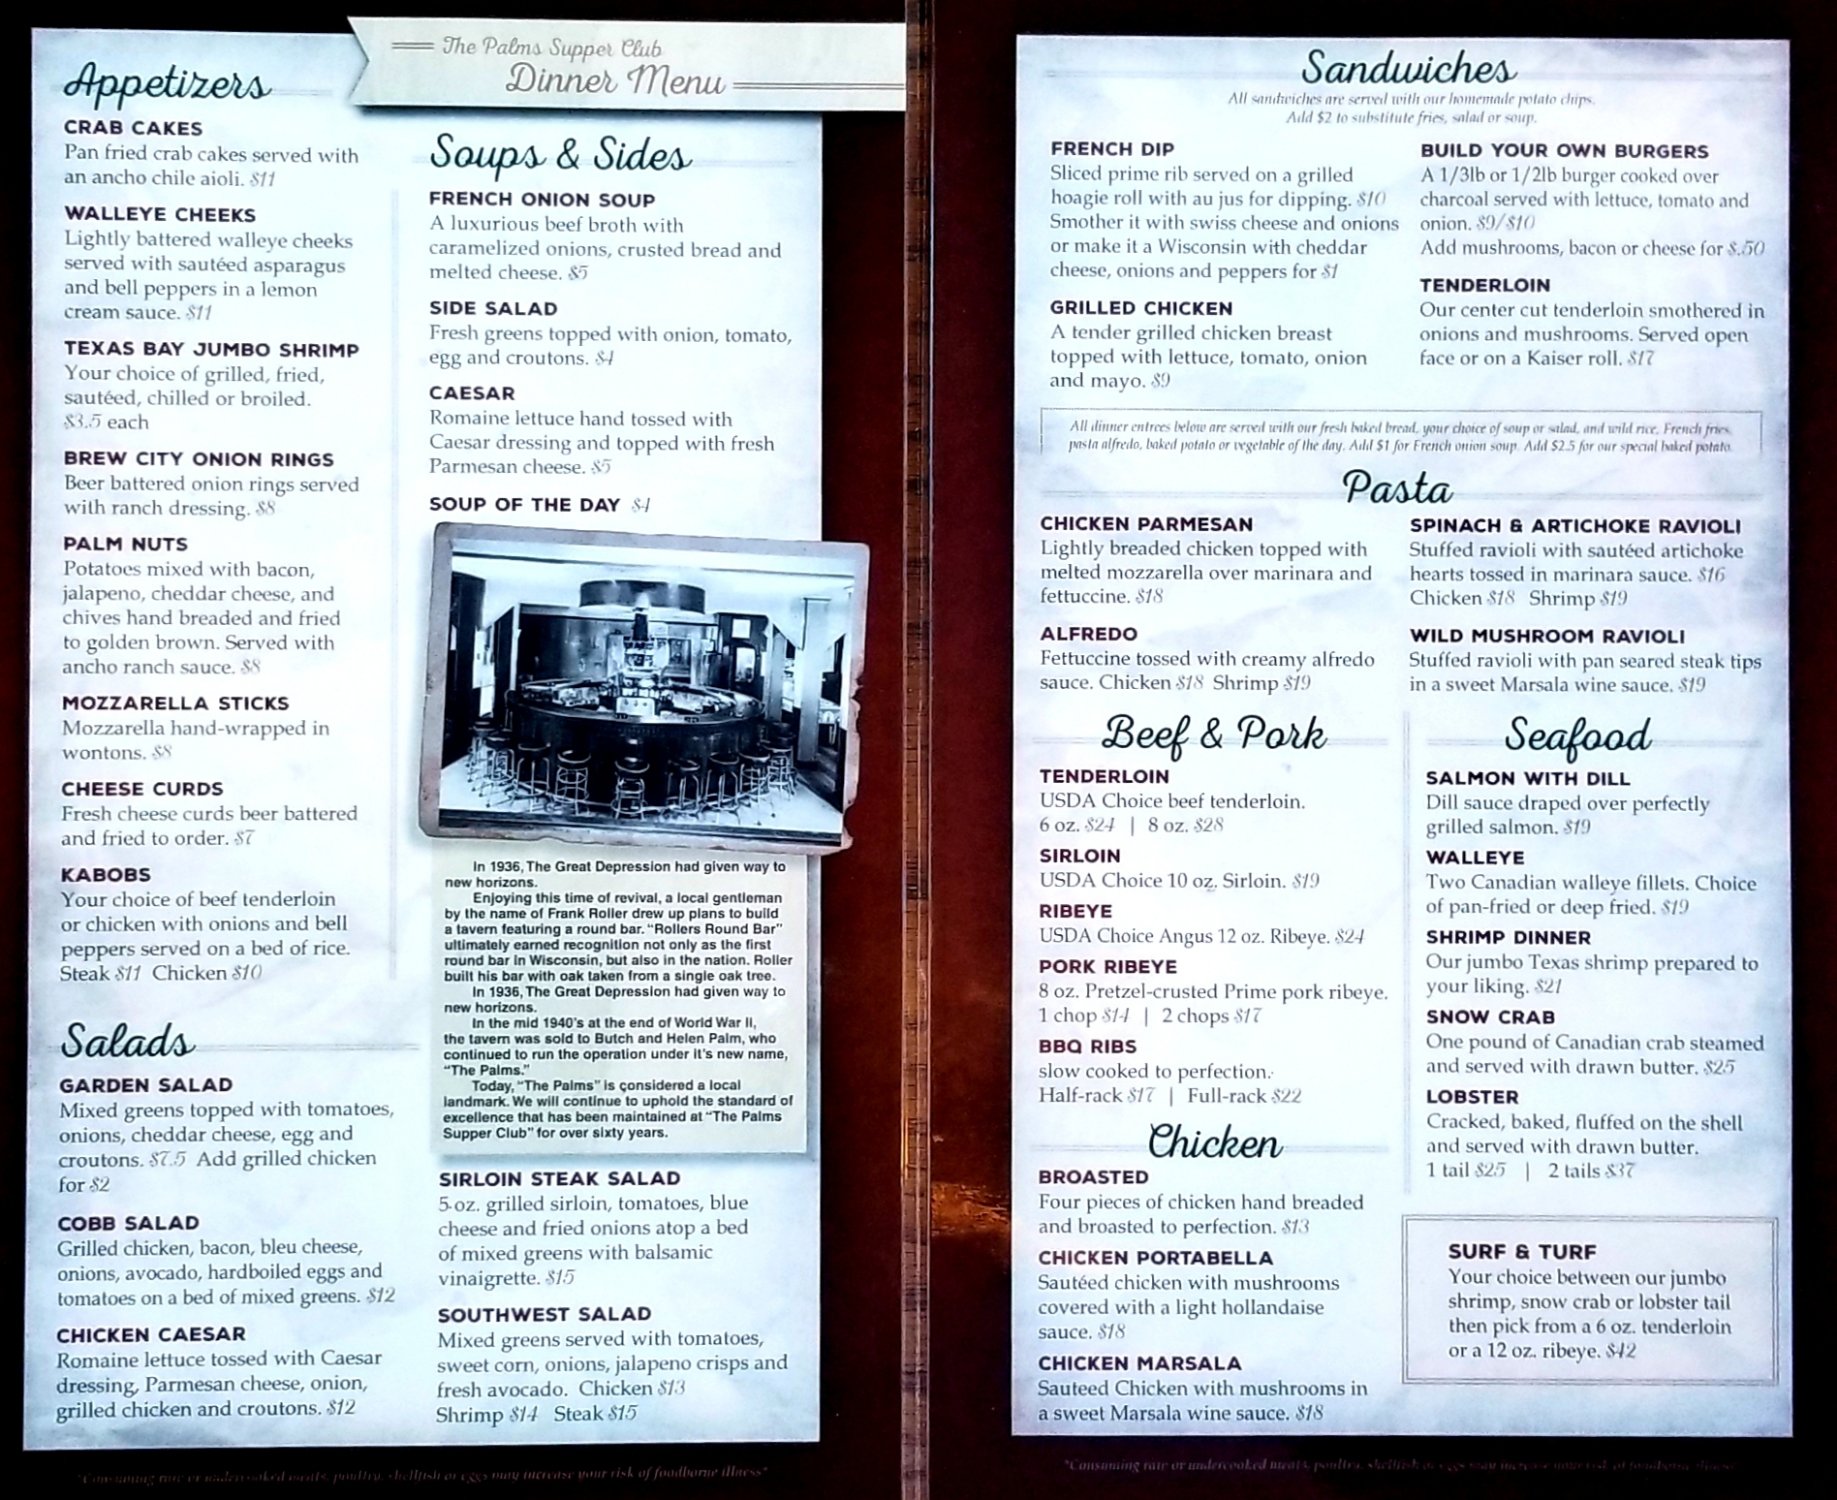 The Palms Supper Club
Dinner Menu
Appetizers
CRAB CAKES
Pan fried crab cakes served with
an ancho chile aioli. $11
WALLEYE CHEEKS
Lightly battered walleye cheeks
served with sautéed asparagus
and bell peppers in a lemon
cream sauce. $11
TEXAS BAY JUMBO SHRIMP
Your choice of grilled, fried,
sautéed, chilled or broiled.
$3.5 each
BREW CITY ONION RINGS
Beer battered onion rings served
with ranch dressing. $8
PALM NUTS
Potatoes mixed with bacon,
jalapeno, cheddar cheese, and
chives hand breaded and fried
to golden brown. Served with
ancho ranch sauce. $8
MOZZARELLA STICKS
Mozzarella hand-wrapped in
wontons. $8
CHEESE CURDS
Fresh cheese curds beer battered
and fried to order. $7
KABOBS
Your choice of beef tenderloin
or chicken with onions and bell
peppers served on a bed of rice.
Steak $11 Chicken $10
Salads
GARDEN SALAD
Mixed greens topped with tomatoes,
onions, cheddar cheese, egg and
croutons. $7.5 Add grilled chicken
for $2
COBB SALAD
Grilled chicken, bacon, bleu cheese,
onions, avocado, hardboiled eggs and
tomatoes on a bed of mixed greens. $12
CHICKEN CAESAR
Romaine lettuce tossed with Caesar
dressing, Parmesan cheese, onion,
grilled chicken and croutons. $12
Soups & Sides
FRENCH ONION SOUP
A luxurious beef broth with
caramelized onions, crusted bread and
melted cheese. $5
SIDE SALAD
Fresh greens topped with onion, tomato,
egg and croutons. $4
CAESAR
Romaine lettuce hand tossed with
Caesar dressing and topped with fresh
Parmesan cheese. $5
SOUP OF THE DAY $4
In 1936, The Great Depression had given way to
new horizons.
Enjoying this time of revival, a local gentleman
by the name of Frank Roller drew up plans to build
a tavern featuring a round bar. "Rollers Round Bar"
ultimately earned recognition not only as the first
round bar in Wisconsin, but also in the nation. Roller
built his bar with oak taken from a single oak tree.
In 1936, The Great Depression had given way to
new horizons.
In the mid 1940's at the end of World War II,
the tavern was sold to Butch and Helen Palm, who
continued to run the operation under it's new name,
"The Palms."
Today, "The Palms" is considered a local
landmark. We will continue to uphold the standard of
excellence that has been maintained at "The Palms
Supper Club" for over sixty years.
SIRLOIN STEAK SALAD
5 oz. grilled sirloin, tomatoes, blue
cheese and fried onions atop a bed
of mixed greens with balsamic
vinaigrette. $15
SOUTHWEST SALAD
Mixed greens served with tomatoes,
sweet corn, onions, jalapeno crisps and
fresh avocado. Chicken $13
Shrimp $14 Steak $15
"Consuming raw or undercooked meats, poultry, shellfish or eggs may increase your risk of foodborne illness"
Sandwiches
All sandwiches are served with our homemade potato chips.
Add $2 to substitute fries, salad or soup.
FRENCH DIP
Sliced prime rib served on a grilled
hoagie roll with au jus for dipping. $10
Smother it with swiss cheese and onions
or make it a Wisconsin with cheddar
cheese, onions and peppers for $1
GRILLED CHICKEN
A tender grilled chicken breast
topped with lettuce, tomato, onion
and mayo. $9
BUILD YOUR OWN BURGERS
A 1/3lb or 1/2lb burger cooked over
charcoal served with lettuce, tomato and
onion. $9/$10
Add mushrooms, bacon or cheese for $.50
TENDERLOIN
Our center cut tenderloin smothered in
onions and mushrooms. Served open
face or on a Kaiser roll. $17
All dinner entrees below are served with our fresh baked bread, your choice of soup or salad, and wild rice, French fries,
pasta alfredo, baked potato or vegetable of the day. Add $1 for French onion soup. Add $2.5 for our special baked potato.
Pasta
CHICKEN PARMESAN
Lightly breaded chicken topped with
melted mozzarella over marinara and
fettuccine. $18
ALFREDO
Fettuccine tossed with creamy alfredo
sauce. Chicken $18 Shrimp $19
SPINACH & ARTICHOKE RAVIOLI
Stuffed ravioli with sautéed artichoke
hearts tossed in marinara sauce. $16
Chicken $18 Shrimp $19
WILD MUSHROOM RAVIOLI
Stuffed ravioli with pan seared steak tips
in a sweet Marsala wine sauce. $19
Beef & Pork
TENDERLOIN
USDA Choice beef tenderloin.
6 oz. $24 | 8 oz. $28
SIRLOIN
USDA Choice 10 oz. Sirloin. $19
RIBEYE
USDA Choice Angus 12 oz. Ribeye. $24
PORK RIBEYE
8 oz. Pretzel-crusted Prime pork ribeye.
1 chop $14 | 2 chops $17
BBQ RIBS
slow cooked to perfection.
Half-rack $17 | Full-rack $22
Chicken
BROASTED
Four pieces of chicken hand breaded
and broasted to perfection. $13
CHICKEN PORTABELLA
Sautéed chicken with mushrooms
covered with a light hollandaise
sauce. $18
CHICKEN MARSALA
Sauteed Chicken with mushrooms in
a sweet Marsala wine sauce. $18
Seafood
SALMON WITH DILL
Dill sauce draped over perfectly
grilled salmon. $19
WALLEYE
Two Canadian walleye fillets. Choice
of pan-fried or deep fried. $19
SHRIMP DINNER
Our jumbo Texas shrimp prepared to
your liking. $21
SNOW CRAB
One pound of Canadian crab steamed
and served with drawn butter. $25
LOBSTER
Cracked, baked, fluffed on the shell
and served with drawn butter.
1 tail $25 | 2 tails $37
SURF & TURF
Your choice between our jumbo
shrimp, snow crab or lobster tail
then pick from a 6 oz. tenderloin
or a 12 oz. ribeye. $42
"Consuming raw or undercooked meats, poultry, shellfish or eggs may increase your risk of foodborne illness